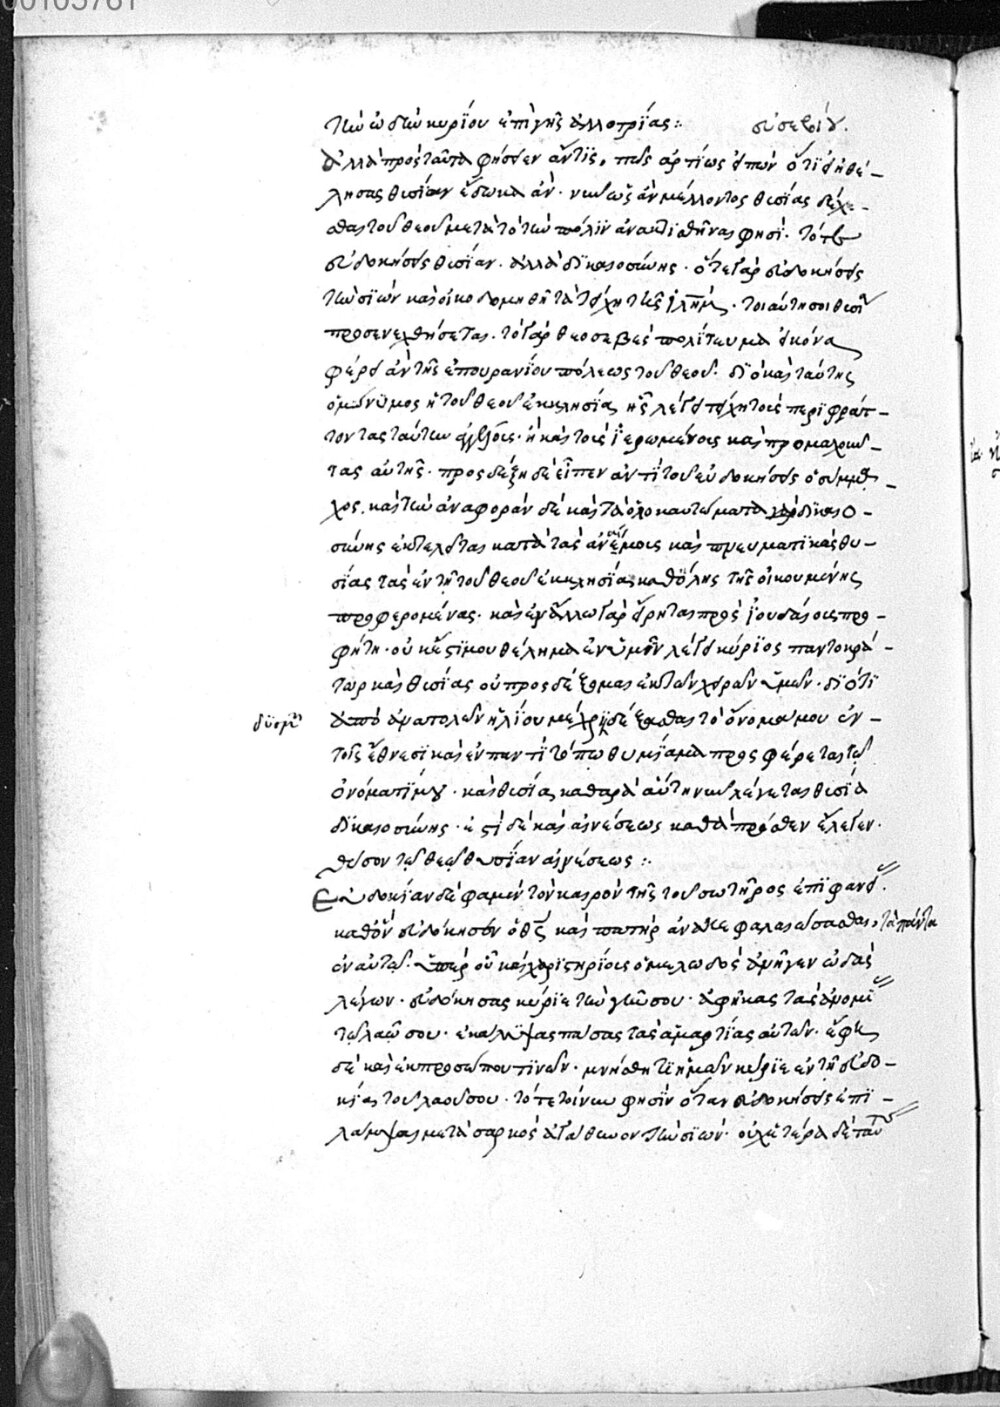 τὴν ὠδὴν κυρίου ἐπὶ γῆς ἀλλοτρίας :· εὐσεβίου.
ἀλλὰ πρὸς ταῦτα φήσειεν ἄν τις, πῶς ἀρτίως εἰπὼν ὅτι εἰ ἠθέ-
λησας θυσίαν ἔδωκα ἄν· νῦν ὡς ἂν μέλλοντος θυσίας δέχε-
σθαι τοῦ θεοῦ μετὰ τὸ τὴν πόλιν ἀνακτισθῆναι φησί· τότε
εὐδοκήσεις θυσίαν· ἀλλὰ δικαιοσύνης· ὅτε γὰρ εὐδοκήσεις
τὴν σιὼν καὶ οἰκοδομηθῇ τὰ τείχη τῆς ἰλήμ· τοιαύτη σοι θυσία
προσενεχθήσεται· τὸ γὰρ θεοσεβὲς πολίτευμα εἰκόνα
φέρει ἂν τῆς ἐπουρανίου πόλεως τοῦ θεοῦ· διὸ καὶ ταύτης
ὁμώνυμος ἡ τοῦ θεοῦ ἐκκλησία, ἧς λέγει τείχη τοὺς περιφράτ-
τοντας ταύτην ἀγγέλους· ἢ καὶ τοὺς ἱερωμένους καὶ προμαχοῦν-
τας αὐτῆς· προσδέξῃ δὲ εἶπεν ἀντὶ τοῦ εὐδοκήσεις ὁ σύμμα-
χος, καὶ τὴν ἀναφορὰν δὲ καὶ τὰ ὁλοκαυτώματα δικαιο-
σύνης ἐκτελεῖται κατὰ τὰς ἀναίμους καὶ πνευματικὰς θυ-
σίας τὰς ἐν τῇ τοῦ θεοῦ ἐκκλησίᾳ καθ' ὅλης τῆς οἰκουμένης
προφερομένας· καὶ ἐν ἄλλῳ γὰρ εἴρηται πρὸς ἰουδαίους προ-
φήτῃ· οὐκ ἔστι μου θέλημα ἐν ὑμῖν λέγει κύριος παντοκρά-
τωρ καὶ θυσίας οὐ προσδέξομαι ἐκ τῶν χειρῶν ὑμῶν· διότι
δυσμῶν
ἀπὸ ἀνατολῶν ἡλίου μέχρι δεδόξασθαι τὸ ὄνομά μου ἐν
τοῖς ἔθνεσι καὶ ἐν παντὶ τόπῳ θυμίαμα προσφέρεται τῷ
ὀνόματί μου· καὶ θυσία καθαρὰ αὕτη νῦν λέγεται θυσία
δικαιοσύνης· ἔστι δὲ καὶ αἰνέσεως καθὰ πρόσθεν ἔλεγεν·
θῦσον τῷ θεῷ θυσίαν αἰνέσεως :·
Εὐδοκίαν δέ φαμεν τὸν καιρὸν τῆς τοῦ σωτῆρος ἐπιφανεί·
καθ' ὃν εὐδόκησεν ὁ θς καὶ πατὴρ ἀνακεφαλαιώσασθαι, τὰ πάντα
ἐν αὐτῷ· ὑπὲρ οὗ καὶ χαριστηρίους ὁ μελωδὸς ἀνῆγεν ὠδὰς
λέγων· εὐδόκησας κύριε τὴν γῆν σου· ἀφῆκας τὰς ἀνομί
τῷ λαῷ σου· ἐκάλυψας πάσας τὰς ἁμαρτίας αὐτῶν· ἔφη
δὲ καὶ ἐκ προσώπου τινῶν· μνήσθητι ἡμῶν κύριε ἐν τῇ εὐδο-
κίᾳ τοῦ λαοῦ σου· τότε τοίνυν φησὶν ὅταν εὐδοκήσεις ἐπι-
λάμψαι μετὰ σαρκὸς ἀγάθυνον τὴν σιών· οὐχ ἑτέρα δὲ ταύτ